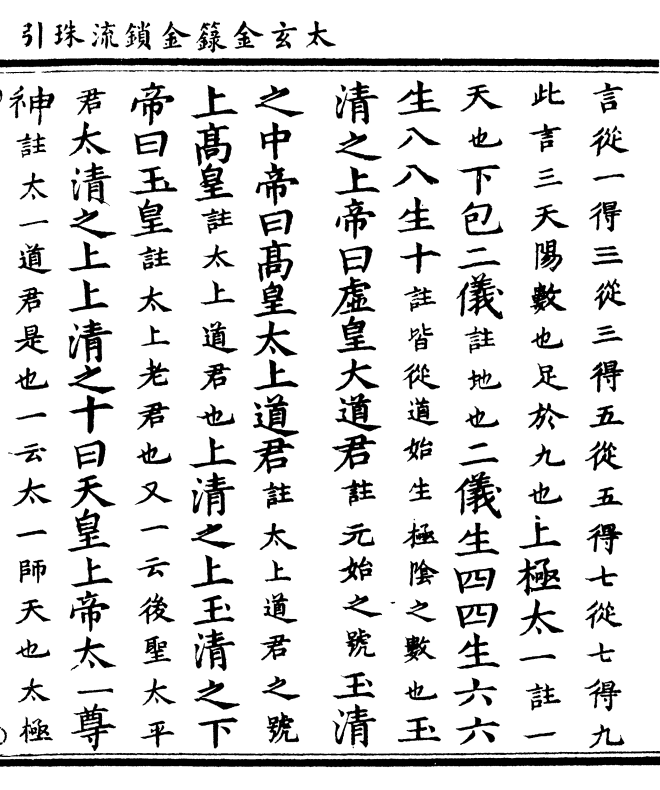 太玄金籙金鎖流珠引
言從一得三從三得五從五得七從七得九
此言三天陽數也足於九也上極太一註一
天也下包二儀註地也二儀生四四生六六
生八八生十註皆從道始生極陰之數也玉
清之上帝曰虛皇大道君註元始之號玉清
之中帝曰高皇太上道君註太上道君之號
上高皇註太上道君也上清之上玉清之下
帝曰玉皇註太上老君也又一云後聖太平
君太清之上上清之十曰天皇上帝太一尊
神註太一道君是也一云太一師天也太極